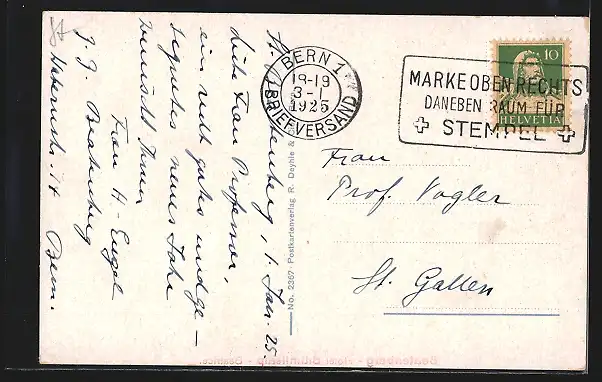 BERN 1
18-19
3-I
1925
BRIEFVERSAND
10
HELVETIA
MARKE OBEN RECHTS
DANEBEN RAUM FÜR
STEMPEL
enberg, 1. Jan. 25.
Liebe Frau Professor,
ein recht gutes und ge-
segnetes neues Jahr
wünscht Ihnen
Frau H. Engel
z. Z. Beatenberg
14 Bern.
No. 2367 Postkartenverlag R. Deyhle &
Frau
Prof. Vogler
St. Gallen
Beatenberg - Hotel